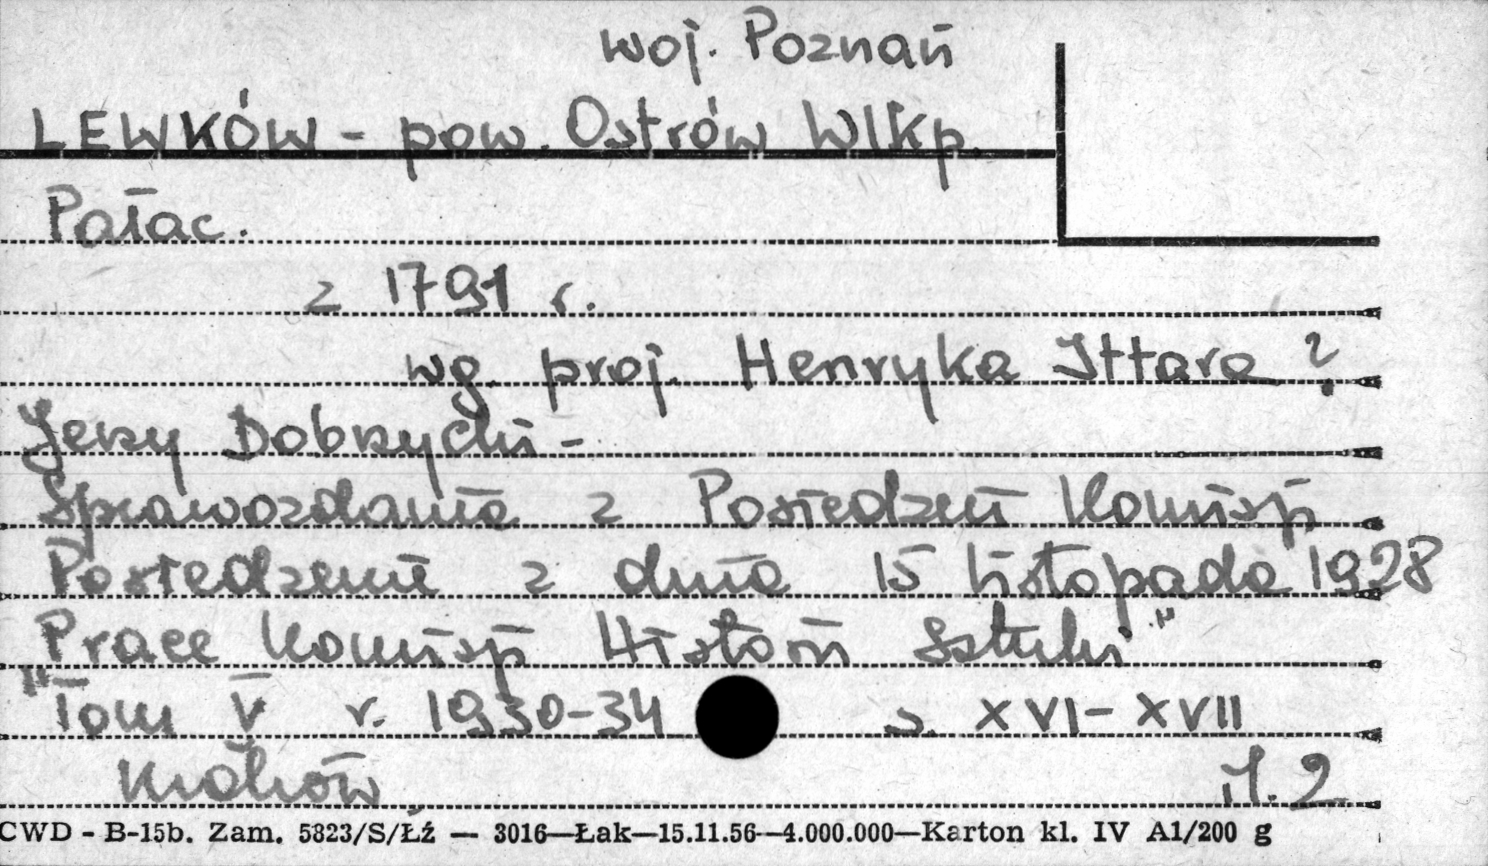 woj. Poznań
LEWKÓW - pow. Ostrów Wlkp.
Pałac.
z 1791 r.
wg. proj. Henryka Ittara ?
Jerzy Dobrzycki -
Sprawozdania z Posiedzeń Komisji
Posiedzenie z dnia 15 listopada 1928
Prace Komisji Historii Sztuki"
"Tom V r. 1930-34 s. XVI-XVII
Kraków. il. 2
CWD - B-15b. Zam. 5823/S/Łź — 3016—Łak—15.11.56—4.000.000—Karton kl. IV A1/200 g